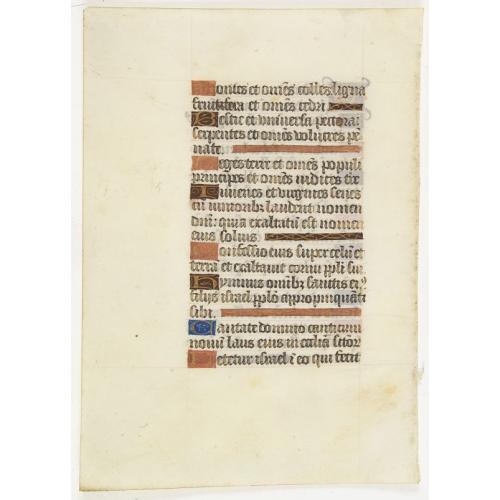 Montes et om̄es colles ligna
fructifera et om̄es cedri
Bestie et vniuersa pectora:
serpentes et om̄es volucres pē
nate.
Reges terre et om̄es populi
principes et om̄es iudices t̄re
Iuuenes et virgines senes
cū iuniorib; laudent nomen
dn̄i: quia exaltatū est nomen
eius solius.
Confessio eius super celū et
terrā et exaltauit cornu ppl̄i sui
Hymnus om̄ib; sanctis ei9
filijs israel pplō appropinquāti
sibi.
Cantate domino canticum
nouū laus eius in eccl̄ia sctōr
Letetur israel ī eo qui fecit